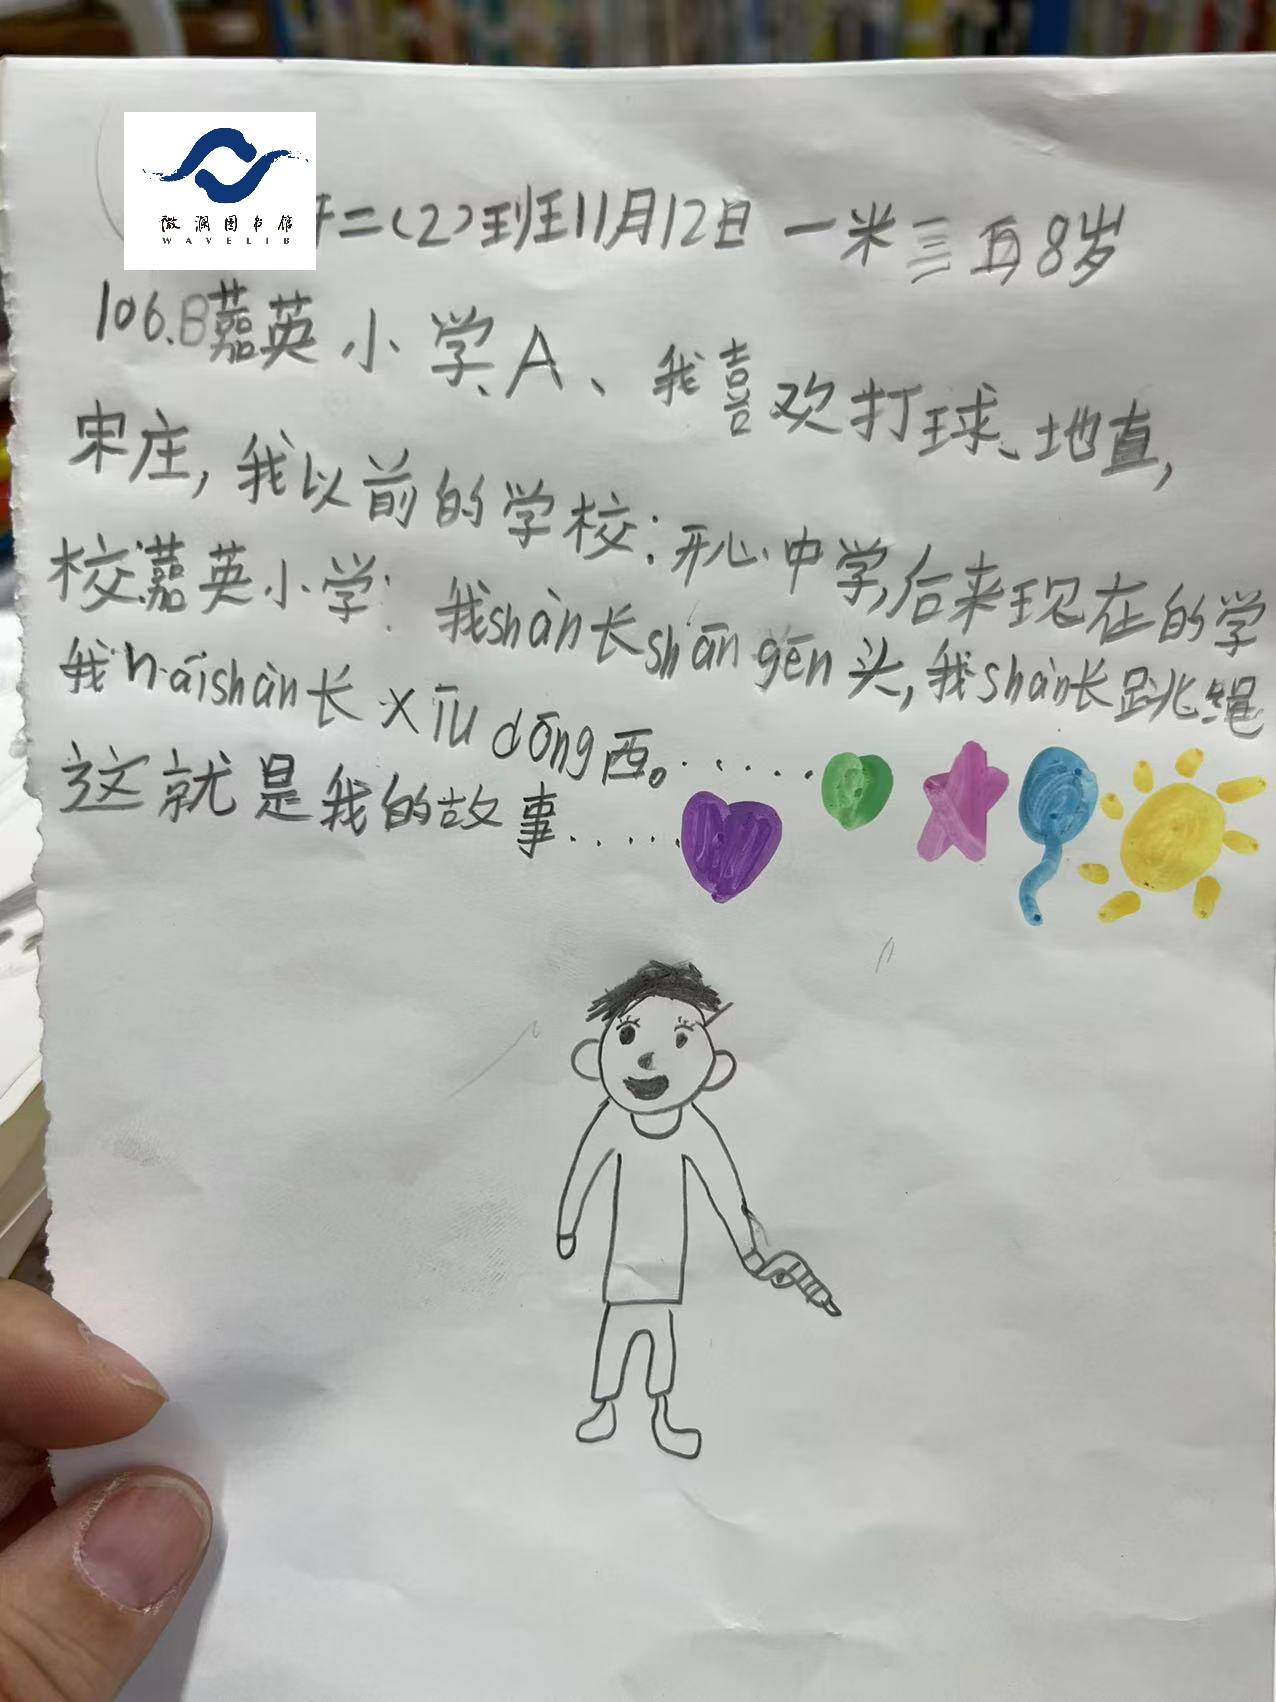 微澜图书馆
WAVELIB
二(2)班11月12日 一米三五8岁
106.B嘉英小学、A、我喜欢打球、地直,
宋庄,我以前的学校:开心中学,后来现在的学
校:嘉英小学: 我shàn长shāngēn头,我shàn长跳绳
我hāishàn长xīudōng西。......
这就是我的故事......